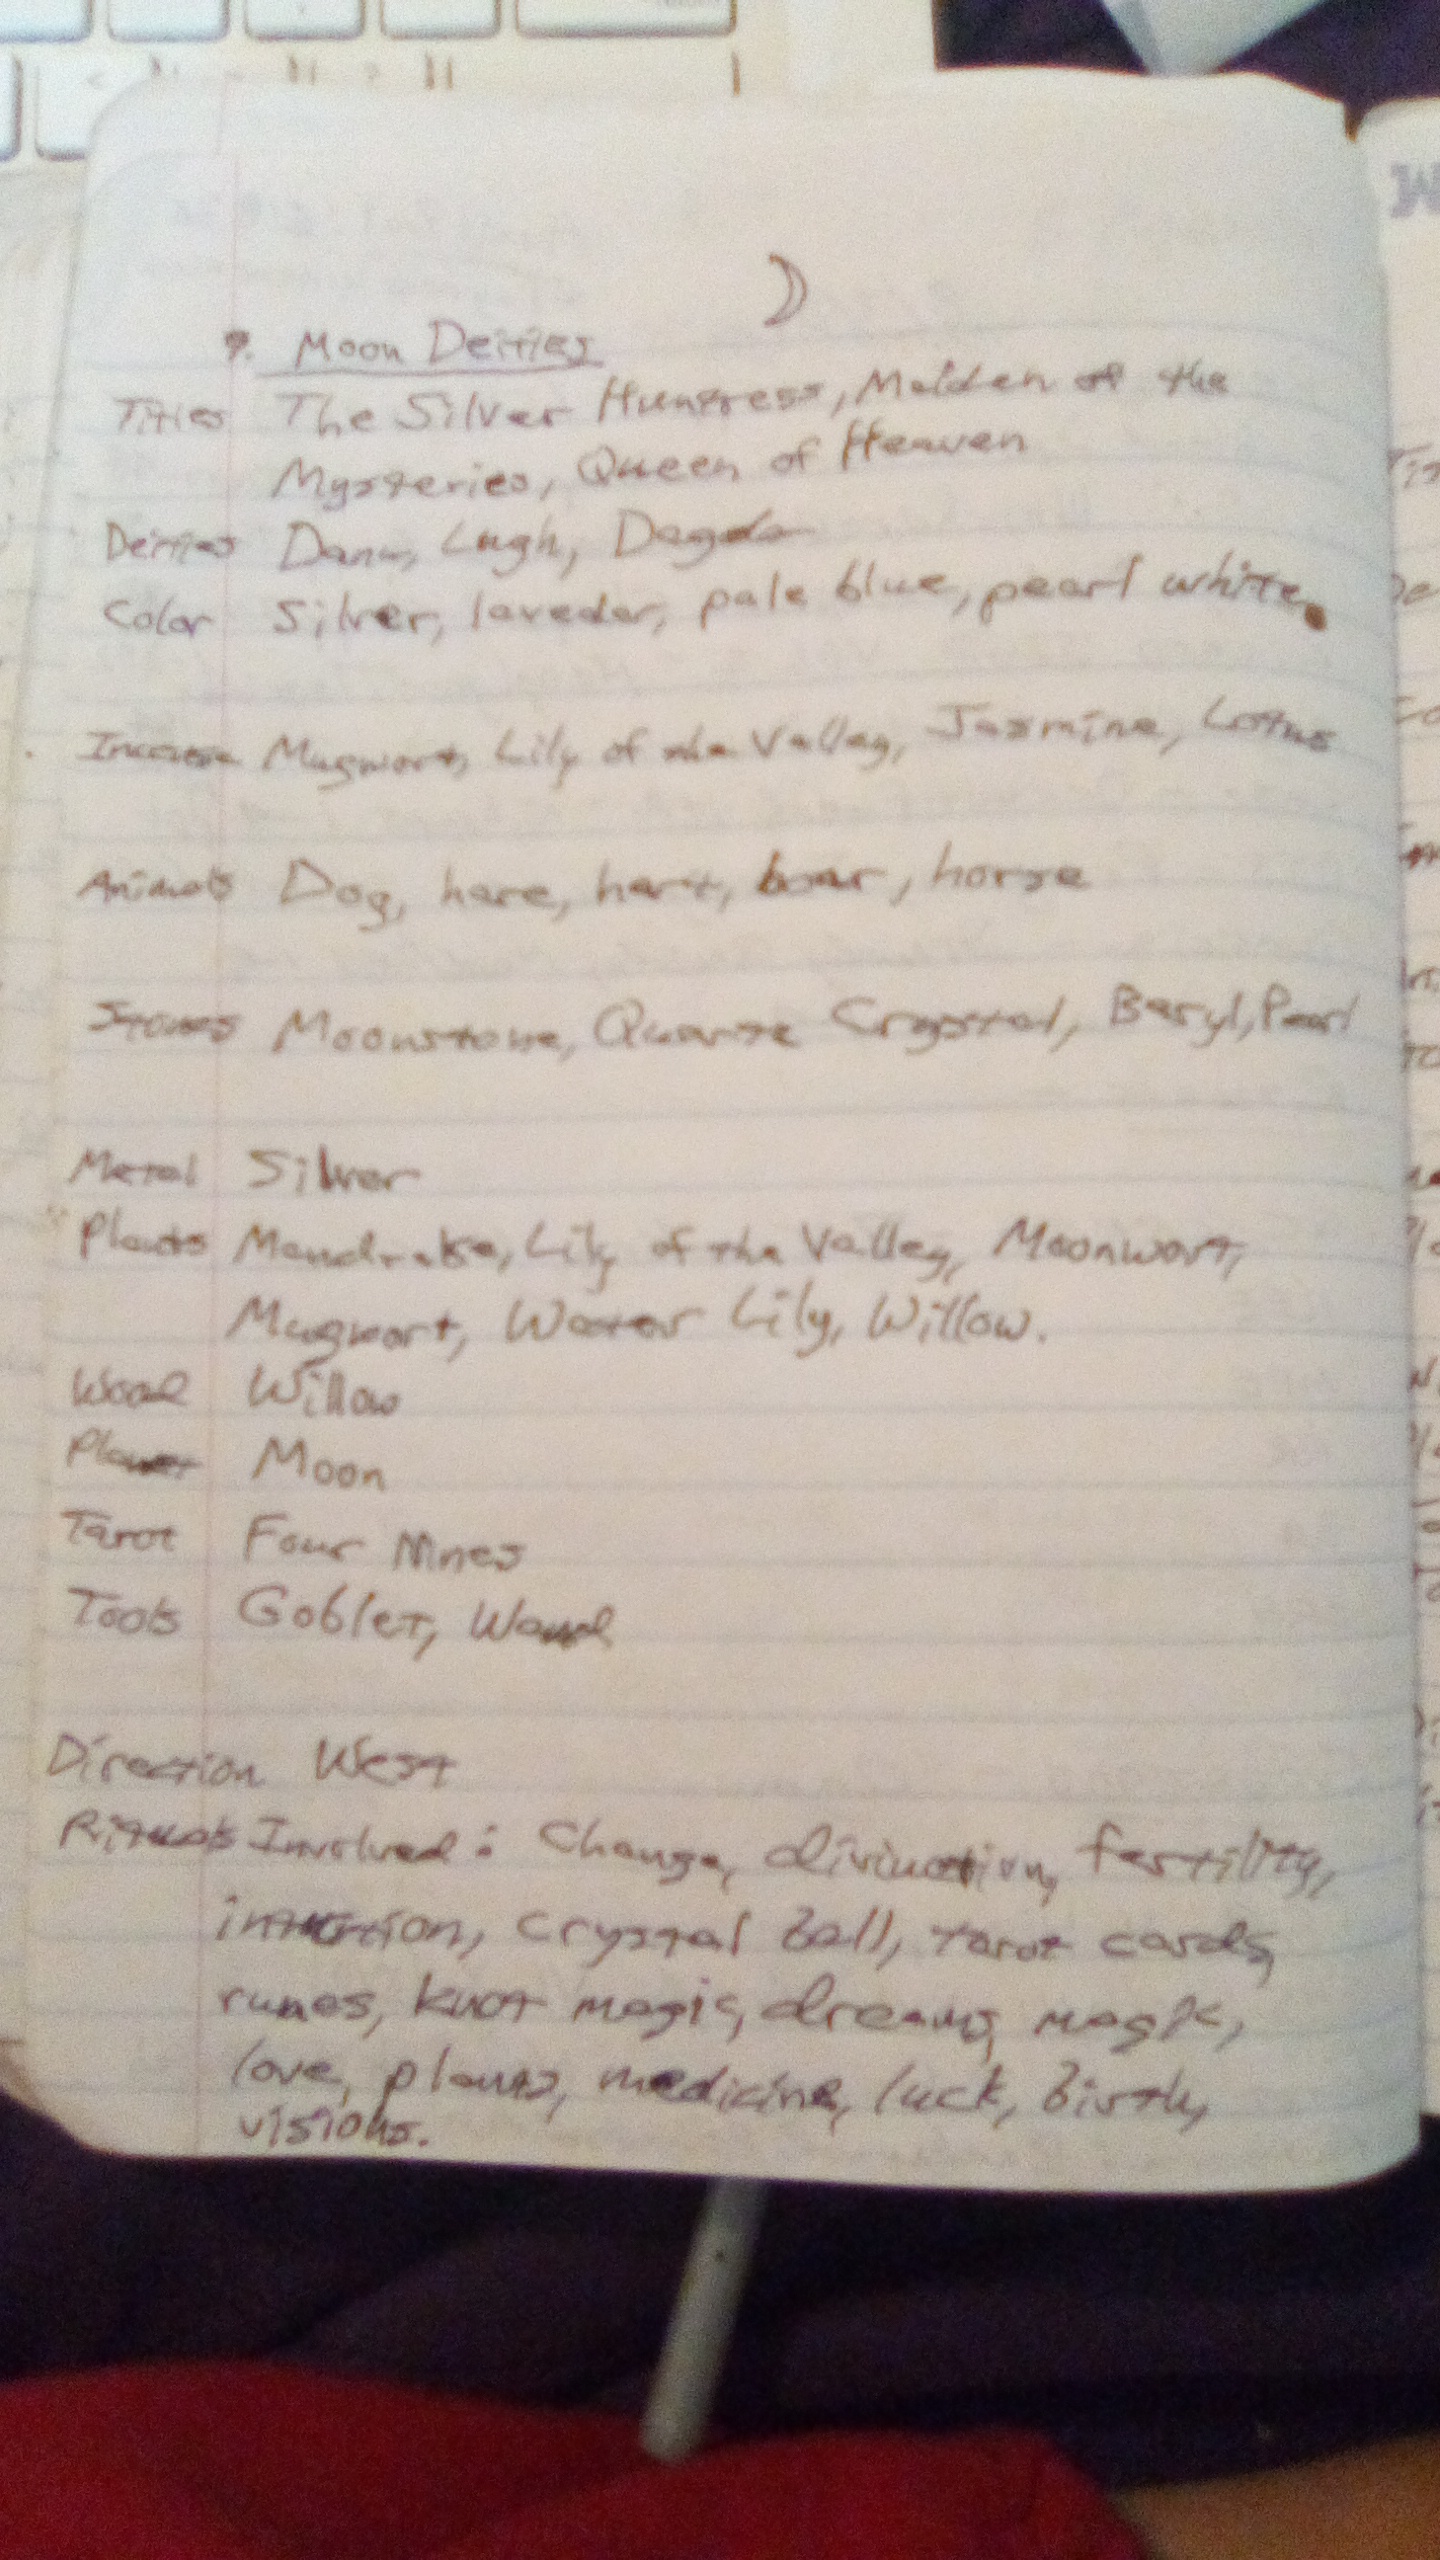 Moon Deities
Titles The Silver Huntress, Maiden of the
Mysteries, Queen of Heaven
Deities Danu, Lugh, Dagda
Color Silver, laveder, pale blue, pearl white.
Incense Mugwort, Lily of the Valley, Jasmine, Lotus
Animals Dog, hare, hart, boar, horse
Stones Moonstone, Quartz Crystal, Beryl, Pearl
Metal Silver
Plants Mandrake, Lily of the Valley, Moonwort,
Mugwort, Water Lily, Willow.
Wood Willow
Planet Moon
Tarot Four Nines
Tools Goblet, Wand
Direction West
Rituals Involved: Change, divination, fertility,
intuition, crystal ball, tarot cards,
runes, knot magic, dreams, magic,
love, plants, medicine, luck, birth,
visions.